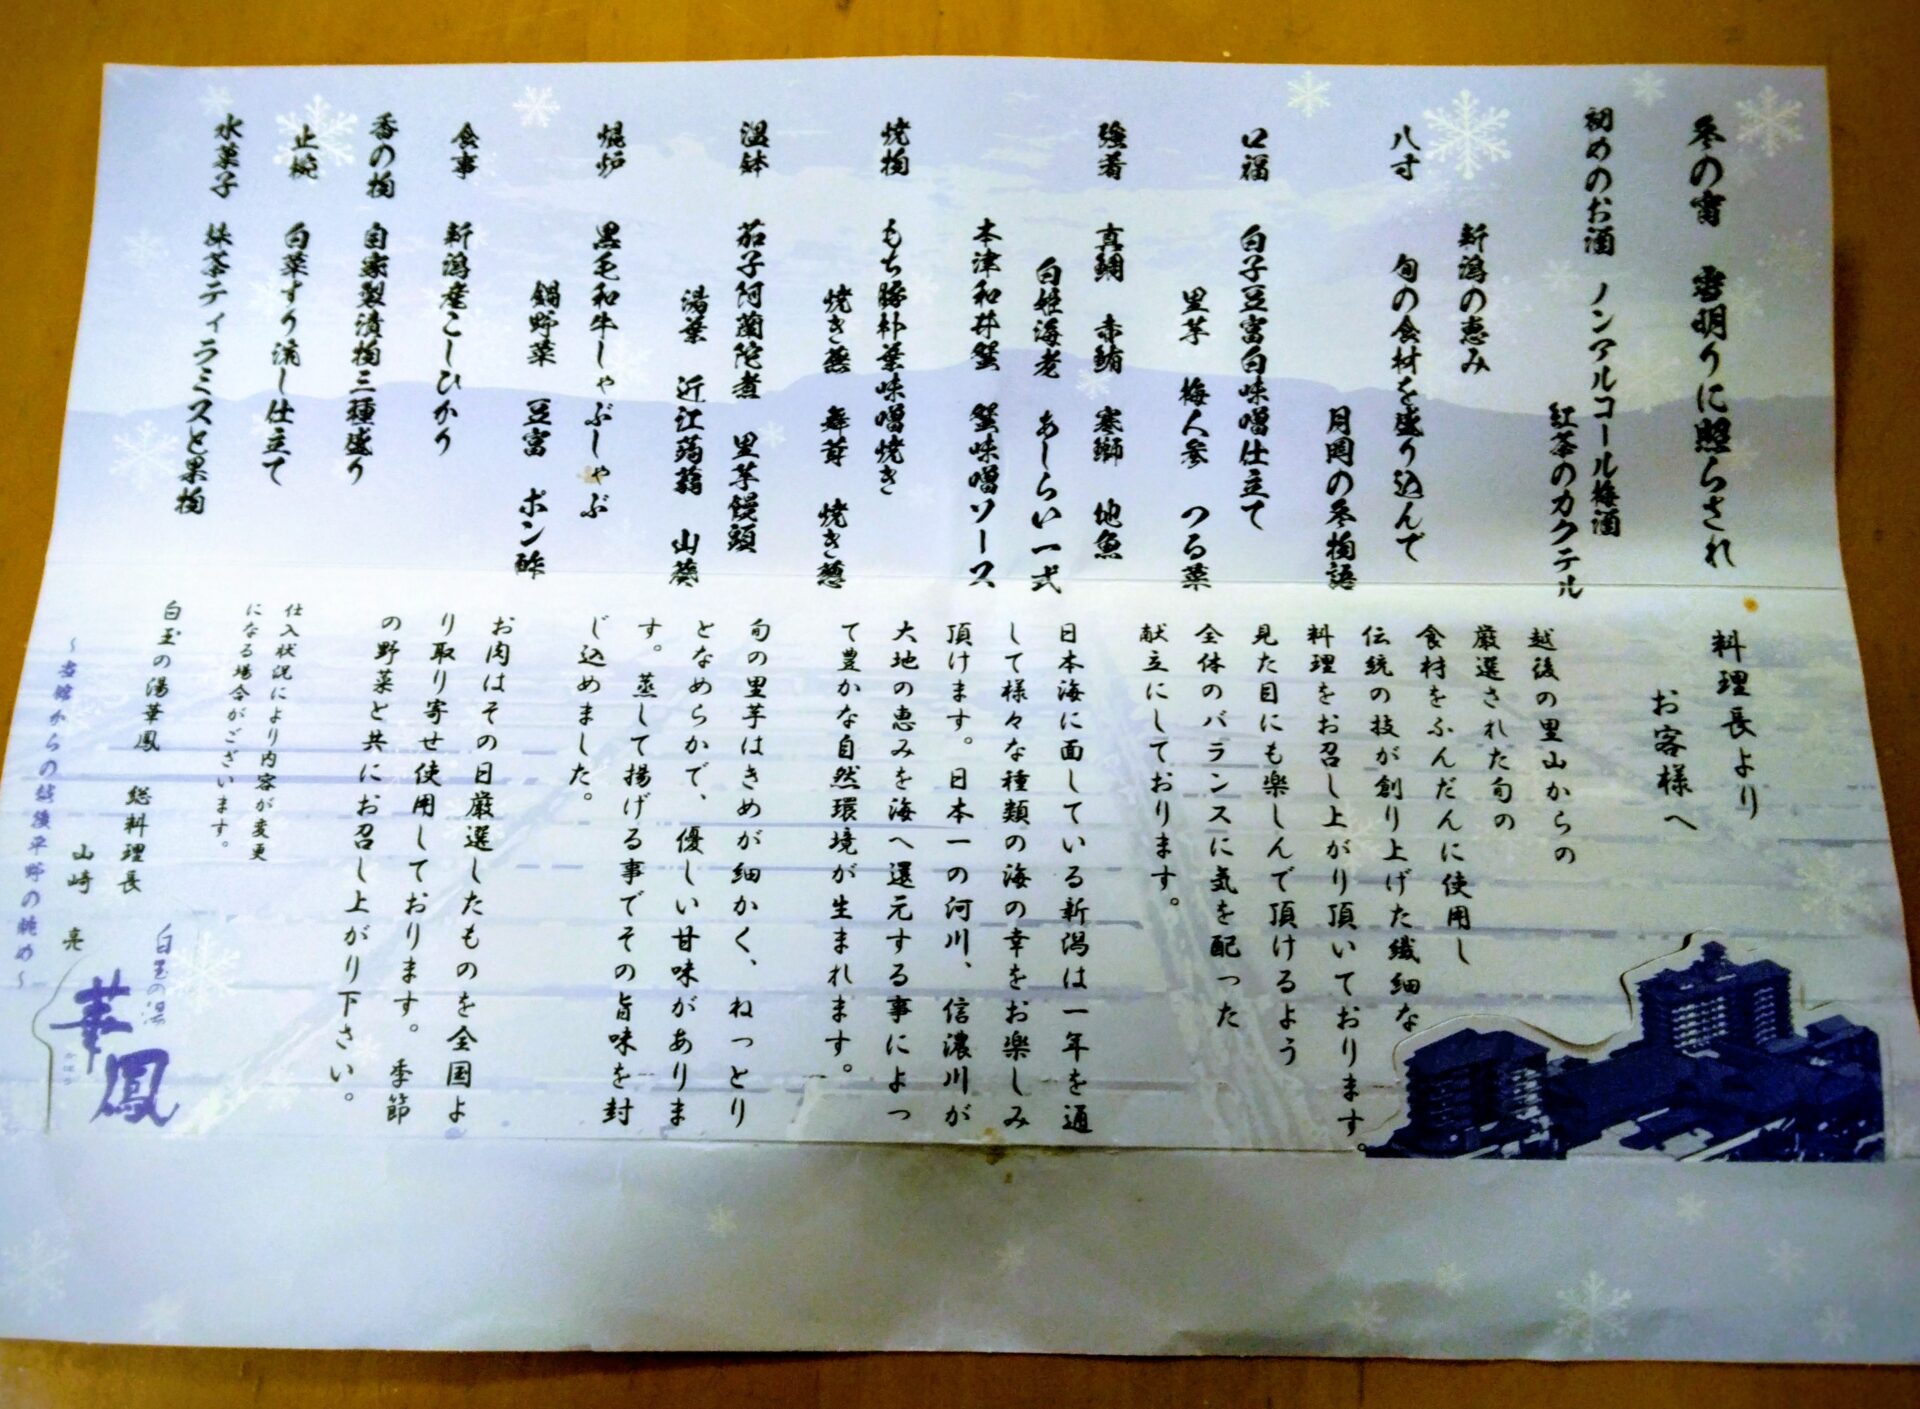 冬の宵 雪明りに照らされ
初めのお酒 ノンアルコール梅酒
紅茶のカクテル
新潟の恵み
八寸 旬の食材を盛り込んで
月岡の冬物語
口福 白子豆富白味噌仕立て
里芋 梅人参 つる菜
強肴 真鯛 赤鮪 寒鰤 地魚
白姫海老 あしらい一式
本津和井蟹 蟹味噌ソース
焼物 もち豚朴葉味噌焼き
焼き葱 舞茸 焼き葱
温鉢 茄子阿蘭陀煮 里芋饅頭
湯葉 近江蒟蒻 山葵
焜炉 黒毛和牛しゃぶしゃぶ
鍋野菜 豆富 ポン酢
食事 新潟産こしひかり
香の物 自家製漬物三種盛り
止椀 白菜すり流し仕立て
水菓子 抹茶ティラミスと果物
料理長より
お客様へ
越後の里山からの
厳選された旬の
食材をふんだんに使用し
伝統の技が創り上げた繊細な
料理をお召し上がり頂いております。
見た目にも楽しんで頂けるよう
全体のバランスに気を配った
献立にしております。
日本海に面している新潟は一年を通
して様々な種類の海の幸をお楽しみ
頂けます。日本一の河川、信濃川が
大地の恵みを海へ還元する事によっ
て豊かな自然環境が生まれます。
旬の里芋はきめが細かく、ねっとり
となめらかで、優しい甘味がありま
す。蒸して揚げる事でその旨味を封
じ込めました。
お肉はその日厳選したものを全国よ
り取り寄せ使用しております。季節
の野菜と共にお召し上がり下さい。
仕入状況により内容が変更
になる場合がございます。
白玉の湯華鳳 総料理長
山崎 亮
～当館からの越後平野の眺め～
白玉の湯
華鳳
かほう